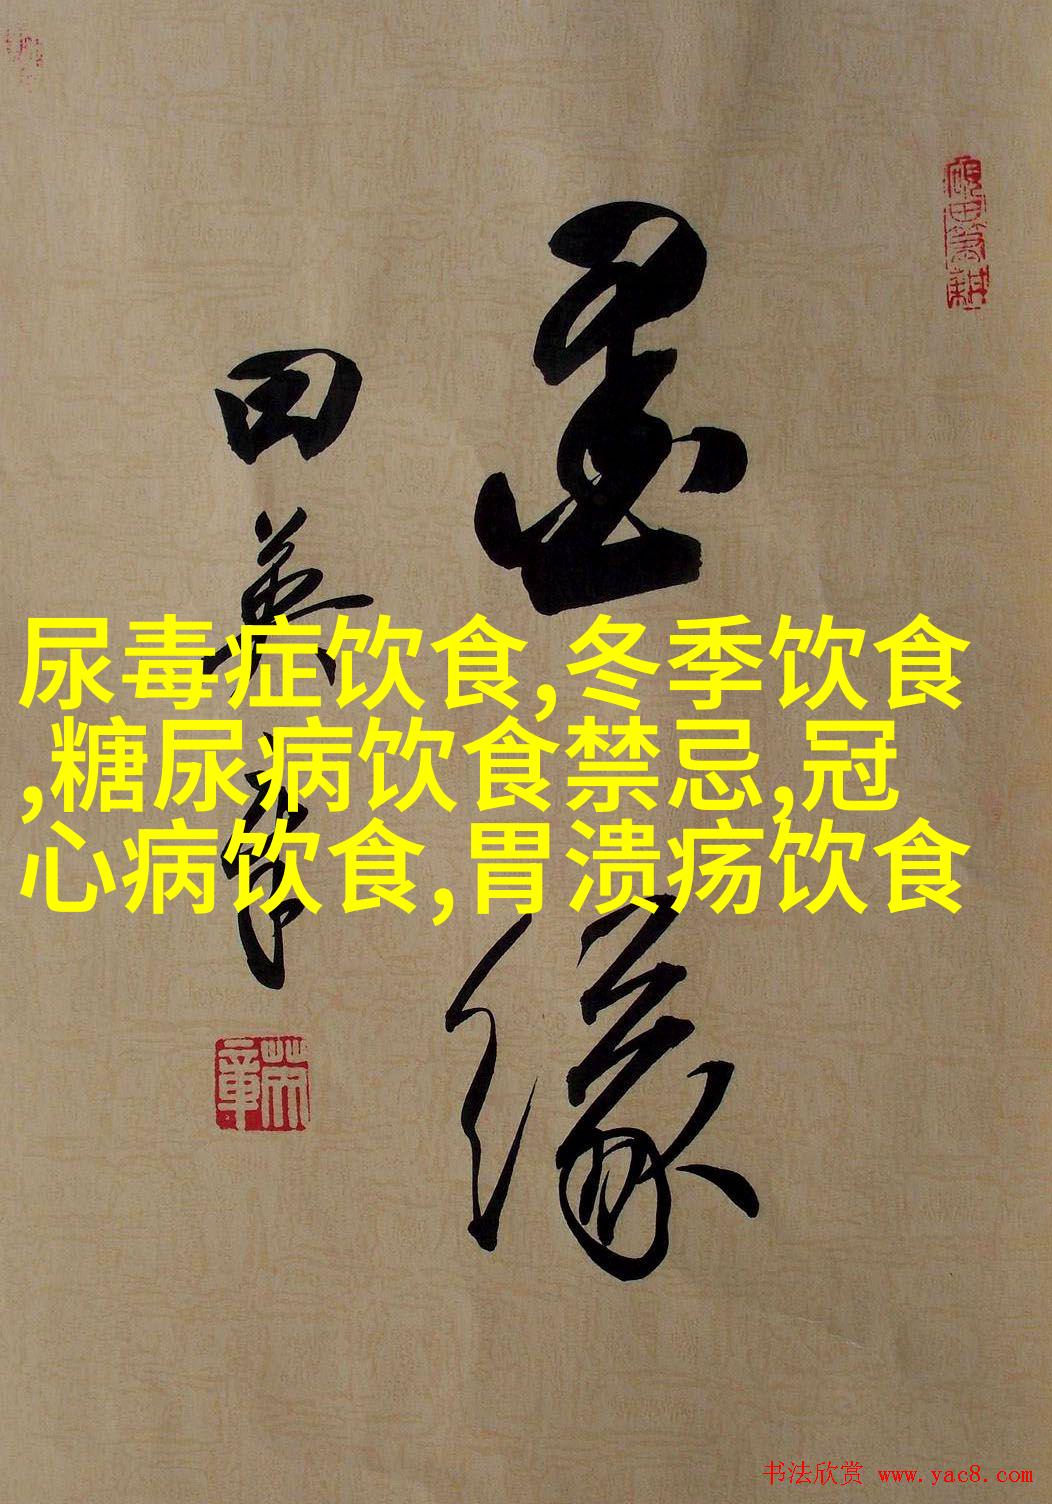 尿毒症饮食,冬季饮食
,糖尿病饮食禁忌,冠
心病饮食,胃溃疡饮食
墨缘
田英章
书法欣赏 www.yac8.com